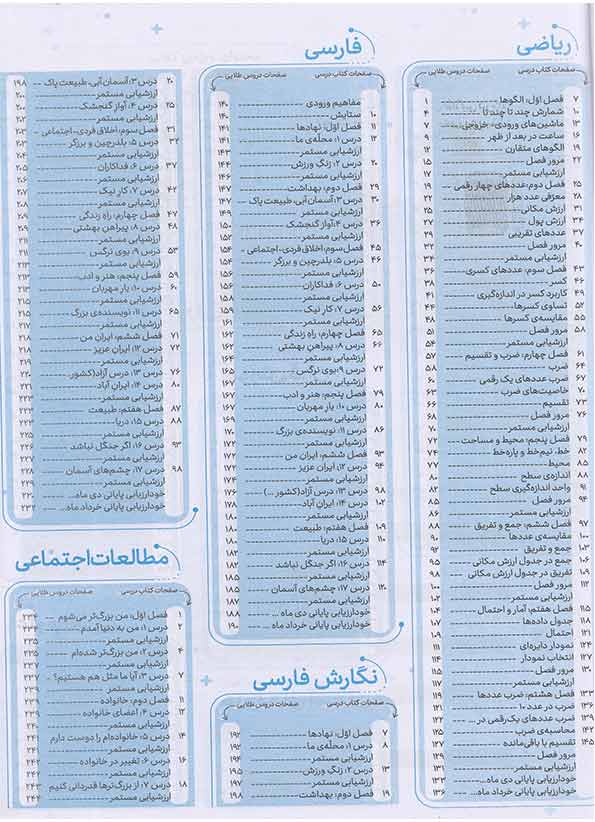 ریاضی
صفحات کتاب درسی صفحات دروس طلایی
۷ فصل اوّل: الگوها ۱
۱۰ شمارش چند تا چند تا ۴
۱۳ ماشین‌های ورودی- خروجی ۷
۱۶ ساعت در بعد از ظهر ۹
۱۹ الگوهای متقارن ۱۲
۲۲ مرور فصل ۱۵
ارزشیابی مستمر ۱۷
۲۵ فصل دوم: عددهای چهار رقمی ۱۹
۲۸ معرّفی عدد هزار ۲۲
۳۱ ارزش مکانی ۲۵
۳۴ ارزش پول ۲۷
۳۷ عددهای تقریبی ۲۹
۴۰ مرور فصل ۳۲
ارزشیابی مستمر ۳۴
۴۳ فصل سوم: عددهای کسری ۳۶
۴۶ کسر ۳۸
۴۹ کاربرد کسر در اندازه‌گیری ۴۱
۵۲ تساوی کسرها ۴۴
۵۵ مقایسه‌ی کسرها ۴۸
۵۸ مرور فصل ۵۱
ارزشیابی مستمر ۵۴
۶۱ فصل چهارم: ضرب و تقسیم ۵۷
۶۴ ضرب ۵۸
۶۷ ضرب عددهای یک رقمی ۶۰
۷۰ خاصیت‌های ضرب ۶۳
۷۳ تقسیم ۶۶
۷۶ مرور فصل ۶۸
ارزشیابی مستمر ۷۰
۷۹ فصل پنجم: محیط و مساحت ۷۲
۸۲ خط، نیم‌خط و پاره‌خط ۷۴
۸۵ محیط ۷۷
۸۸ اندازه‌ی سطح ۸۰
۹۱ واحد اندازه‌گیری سطح ۸۲
۹۴ مرور فصل ۸۵
ارزشیابی مستمر ۸۶
۹۷ فصل ششم: جمع و تفریق ۸۸
۱۰۰ مقایسه‌ی عددها ۹۰
۱۰۳ جمع و تفریق ۹۲
۱۰۶ جمع در جدول ارزش مکانی ۹۵
۱۰۹ تفریق در جدول ارزش مکانی ۹۸
۱۱۲ مرور فصل ۱۰۰
ارزشیابی مستمر ۱۰۲
۱۱۵ فصل هفتم: آمار و احتمال ۱۰۴
۱۱۸ جدول داده‌ها ۱۰۷
۱۲۱ احتمال ۱۰۹
۱۲۴ نمودار دایره‌ای ۱۱۱
۱۲۷ انتخاب نمودار ۱۱۴
۱۳۰ مرور فصل ۱۱۵
ارزشیابی مستمر ۱۱۷
۱۳۳ فصل هشتم: ضرب عددها ۱۱۹
۱۳۶ ضرب در عدد ۱۰ ۱۲۱
۱۳۹ ضرب عددهای یک‌رقمی در ... ۱۲۲
۱۴۲ محاسبه‌ی ضرب ۱۲۵
۱۴۵ تقسیم با باقی‌مانده ۱۲۷
مرور فصل ۱۲۹
ارزشیابی مستمر ۱۳۱
خودارزیابی پایانی دی ماه... ۱۳۳
خودارزیابی پایانی خرداد ماه... ۱۳۶
فارسی
صفحات کتاب درسی صفحات دروس طلایی
مفاهیم ورودی ۱۴۰
۱۰ ستایش ۱۴۰
۱۱ فصل اوّل: نهادها ۱۴۱
۱۲ درس ۱: محلّه‌ی ما ۱۴۱
ارزشیابی مستمر
۲۰ درس ۲: زنگ ورزش ۱۴۴
ارزشیابی مستمر ۱۴۶
۲۹ فصل دوم: بهداشت ۱۴۷
۳۰ درس ۳: آسمان آبی، طبیعت پاک ۱۴۷
ارزشیابی مستمر ۱۴۹
۳۶ درس ۴: آواز گنجشک ۱۵۰
ارزشیابی مستمر ۱۵۲
۴۵ فصل سوم: اخلاق فردی-اجتماعی ۱۵۴
۴۶ درس ۵: بلدرچین و برزگر ۱۵۴
ارزشیابی مستمر ۱۵۶
۵۰ درس ۶: فداکاران ۱۵۶
ارزشیابی مستمر ۱۵۸
۵۶ درس ۷: کار نیک ۱۵۹
ارزشیابی مستمر ۱۶۱
۶۵ فصل چهارم: راه زندگی ۱۶۲
۶۶ درس ۸: پیراهن بهشتی ۱۶۲
ارزشیابی مستمر ۱۶۴
۷۲ درس ۹: بوی نرگس ۱۶۵
ارزشیابی مستمر
فصل پنجم: هنر و ادب ۱۶۷
۸۰ درس ۱۰: یار مهربان ۱۶۷
ارزشیابی مستمر ۱۶۹
۸۶ درس ۱۱: نویسنده‌ی بزرگ ۱۷۰
ارزشیابی مستمر
۹۳ فصل ششم: ایران من
۹۴ درس ۱۲: ایران عزیز ۱۷۲
ارزشیابی مستمر
۹۸ درس ۱۳: درس آزاد(کشور ...) ۱۷۶
۱۰۲ درس ۱۴: ایران آباد ۱۷۸
ارزشیابی مستمر
۱۰۹ فصل هفتم: طبیعت ۱۸۰
۱۱۰ درس ۱۵: دریا ۱۸۰
ارزشیابی مستمر ۱۸۲
۱۱۴ درس ۱۶: اگر جنگل نباشد ۱۸۲
ارزشیابی مستمر
۱۲۰ درس ۱۷: چشم‌های آسمان ۱۸۵
ارزشیابی مستمر ۱۸۷
خودارزیابی پایانی دی ماه ... ۱۸۸
خودارزیابی پایانی خرداد ماه ... ۱۹۰
نگارش فارسی
صفحات کتاب درسی صفحات دروس طلایی
۷ فصل اوّل: نهادها ۱۹۲
۸ درس ۱: محلّه‌ی ما ۱۹۲
ارزشیابی مستمر
۱۳ درس ۲: زنگ ورزش ۱۹۵
ارزشیابی مستمر ۱۹۷
۱۹ فصل دوم: بهداشت ۱۹۸
۲۰ درس ۳: آسمان آبی، طبیعت پاک ۱۹۸
ارزشیابی مستمر ۲۰۰
۲۵ درس ۴: آواز گنجشک ۲۰۰
ارزشیابی مستمر
۳۱ فصل سوم: اخلاق فردی-اجتماعی ۲۰۳
۳۲ درس ۵: بلدرچین و برزگر ۲۰۳
ارزشیابی مستمر
۳۷ درس ۶: فداکاران
ارزشیابی مستمر ۲۰۷
۴۲ درس ۷: کار نیک ۲۰۷
ارزشیابی مستمر
۴۷ فصل چهارم: راه زندگی
۴۸ درس ۸: پیراهن بهشتی ۲۰۹
ارزشیابی مستمر ۲۱۱
۵۳ درس ۹: بوی نرگس ۲۱۱
ارزشیابی مستمر
۵۹ فصل پنجم: هنر و ادب
۶۰ درس ۱۰: یار مهربان
ارزشیابی مستمر
۶۵ درس ۱۱: نویسنده‌ی بزرگ
ارزشیابی مستمر
۷۱ فصل ششم: ایران من ۲۱۸
۷۲ درس ۱۲: ایران عزیز ۲۱۸
ارزشیابی مستمر
۷۶ درس ۱۳: درس آزاد(کشور...
۸۰ درس ۱۴: ایران آباد
ارزشیابی مستمر
۸۷ فصل هفتم: طبیعت
۸۸ درس ۱۵: دریا
ارزشیابی مستمر ۲۲۵
۹۳ درس ۱۶: اگر جنگل نباشد
ارزشیابی مستمر
۹۸ درس ۱۷: چشم‌های آسمان
ارزشیابی مستمر
خودارزیابی پایانی دی ماه...
خودارزیابی پایانی خرداد ماه...
مطالعات اجتماعی
صفحات کتاب درسی صفحات دروس طلایی
فصل اوّل: من بزرگ‌تر می‌شوم ۲۳۴
۲ درس ۱: من به دنیا آمدم ۲۳۴
ارزشیابی مستمر
۴ درس ۲: من بزرگ‌تر شده‌ام
ارزشیابی مستمر ۲۳۷
۷ درس ۳: آیا ما مثل هم هستیم؟ ۲۳۷
ارزشیابی مستمر
۱۱ فصل دوم: خانواده ۲۳۹
۱۲ درس ۴: اعضای خانواده ۲۳۹
ارزشیابی مستمر
۱۴ درس ۵: خانواده‌ام را دوست دارم
ارزشیابی مستمر
۱۶ درس ۶: تغییر در خانواده
ارزشیابی مستمر
۱۸ درس ۷: از بزرگ‌ترها قدردانی کنیم
ارزشیابی مستمر ۲۴۴